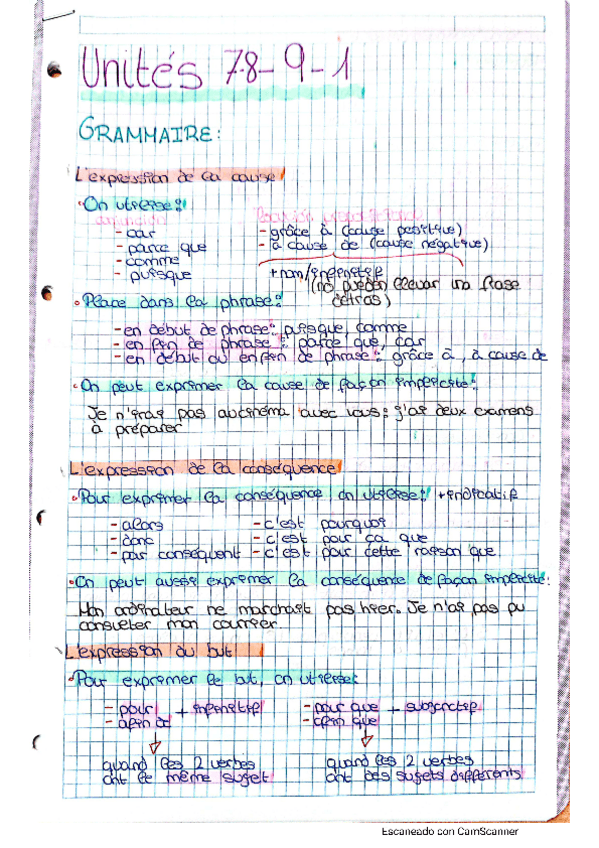 Unités 7-8-9-1
GRAMMAIRE:
L'expression de la cause
On utilise:
- car
- parce que
- comme
- puisque
- grâce à (cause positive)
- à cause de (cause négative)
+ nom/infinitif
(no pueden llevar una frase
detras)
Place dans la phrase:
- en début de phrase: puisque, comme
- en fin de phrase: parce que, car
- en début ou en fin de phrase: grâce à, à cause de
On peut exprimer la cause de façon implicite:
Je n'irai pas au cinéma avec vous: j'ai deux examens
à préparer
L'expression de la conséquence
Pour exprimer la conséquence on utilise: + indicatif
- alors
- donc
- par conséquent
- c'est pourquoi
- c'est pour ça que
- c'est pour cette raison que
On peut aussi exprimer la conséquence de façon implicite:
Mon ordinateur ne marchait pas hier. Je n'ai pas pu
consulter mon courrier.
L'expression du but
Pour exprimer le but, on utilise:
- pour
- afin de
+ infinitif
quand les 2 verbes
ont le même sujet
- pour que
- afin que
+ subjonctif
quand les 2 verbes
ont des sujets différents
Escaneado con CamScanner